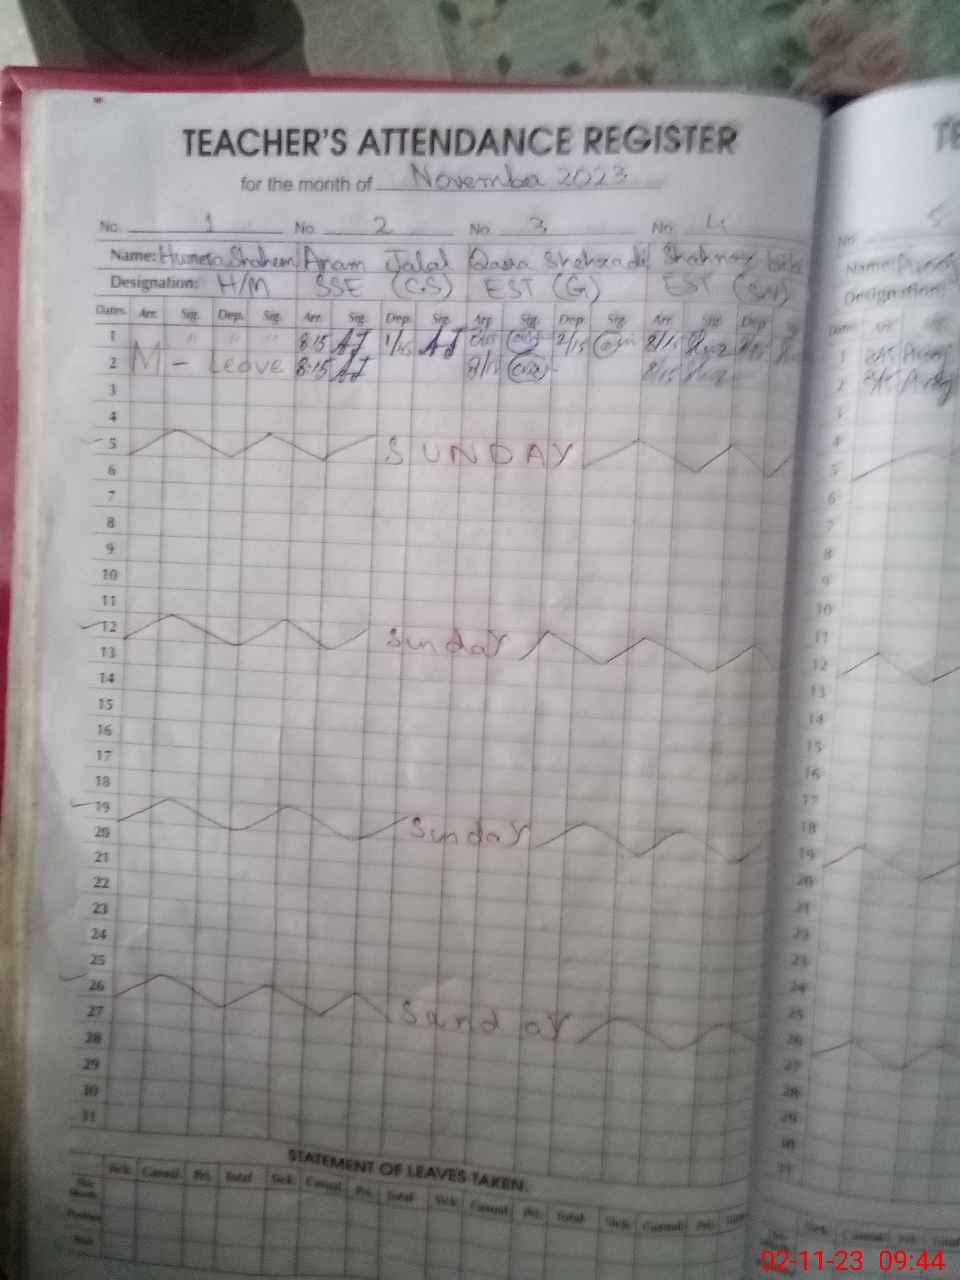 TEACHER'S ATTENDANCE REGISTER
for the month of November 2023
No. 1 No 2 No. 3 No. 4
Name: Humera Shaheen Anam Jalal Qaisra Shahzadi Shahnaz bibi
Designation: H/M SSE (CS) EST (G) EST
Dates Arr. Sig. Dep. Sig. Arr. Sig. Dep. Sig. Arr. Sig. Dep. Sig. Arr. Sig. Dep.
1 " " " " 8:15 AJ 1/45 AJ 2/15 8/15
2 M - Leave 8:15 AJ 8/15 8/15
3
4
5 SUNDAY
6
7
8
9
10
11
12 Sunday
13
14
15
16
17
18
19 Sunday
20
21
22
23
24
25
26 Sunday
27
28
29
30
31
STATEMENT OF LEAVES TAKEN:
Sick Casual Pri. Total Sick Casual Pri. Total Sick Casual Pri. Total Sick Casual Pri. Total
This Month
Previous
Total
TE
No 5
Name:
Designation:
Dates Arr. Sig.
1 8/15
2 8/15
4
5
6
7
8
9
10
11
12
13
14
15
16
17
18
19
20
21
22
23
24
25
26
27
28
29
30
31
Sick Casual Pri. Total
02-11-23 09:44